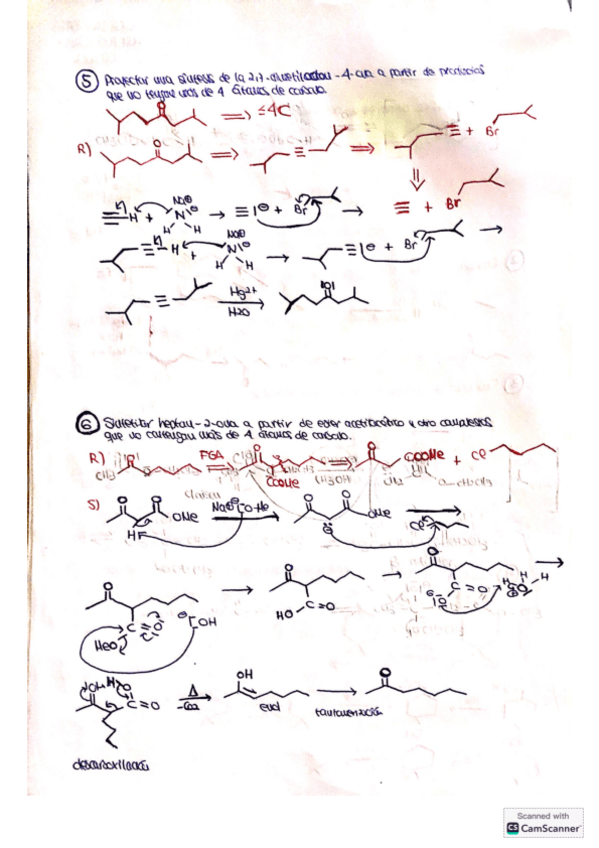 5 Proyectar una síntesis de la 2,7-dimetiloctan-4-ona a partir de productos
que no tengan más de 4 átomos de carbono.
⇒ ≤4C
R) ⇒ ≡ ⇒ ≡ + Br
≡ + Br
≡H + Na⊕ N⊖ H H → ≡⊖ + Br →
≡H + Na⊕ N⊖ H H → ≡⊖ + Br →
≡ Hg2+ H2O → O
6 Sintetizar heptan-2-ona a partir de ester acetilacético y otro compuestos
que no contengan más de 4 átomos de carbono.
R) O FGA ⇒ O COOMe ⇒ O COOMe + Cl
Claisen
S) O O OMe H Na⊕ ⊖O-Me → O O OMe ⊖ Cl →
O C=O MeO ⊖OH → O HO C=O → O C=O ⊖O H O H H →
O H O C=O Δ -CO2 → OH enol → O
tautomerización
descarboxilación
Scanned with
CS CamScanner